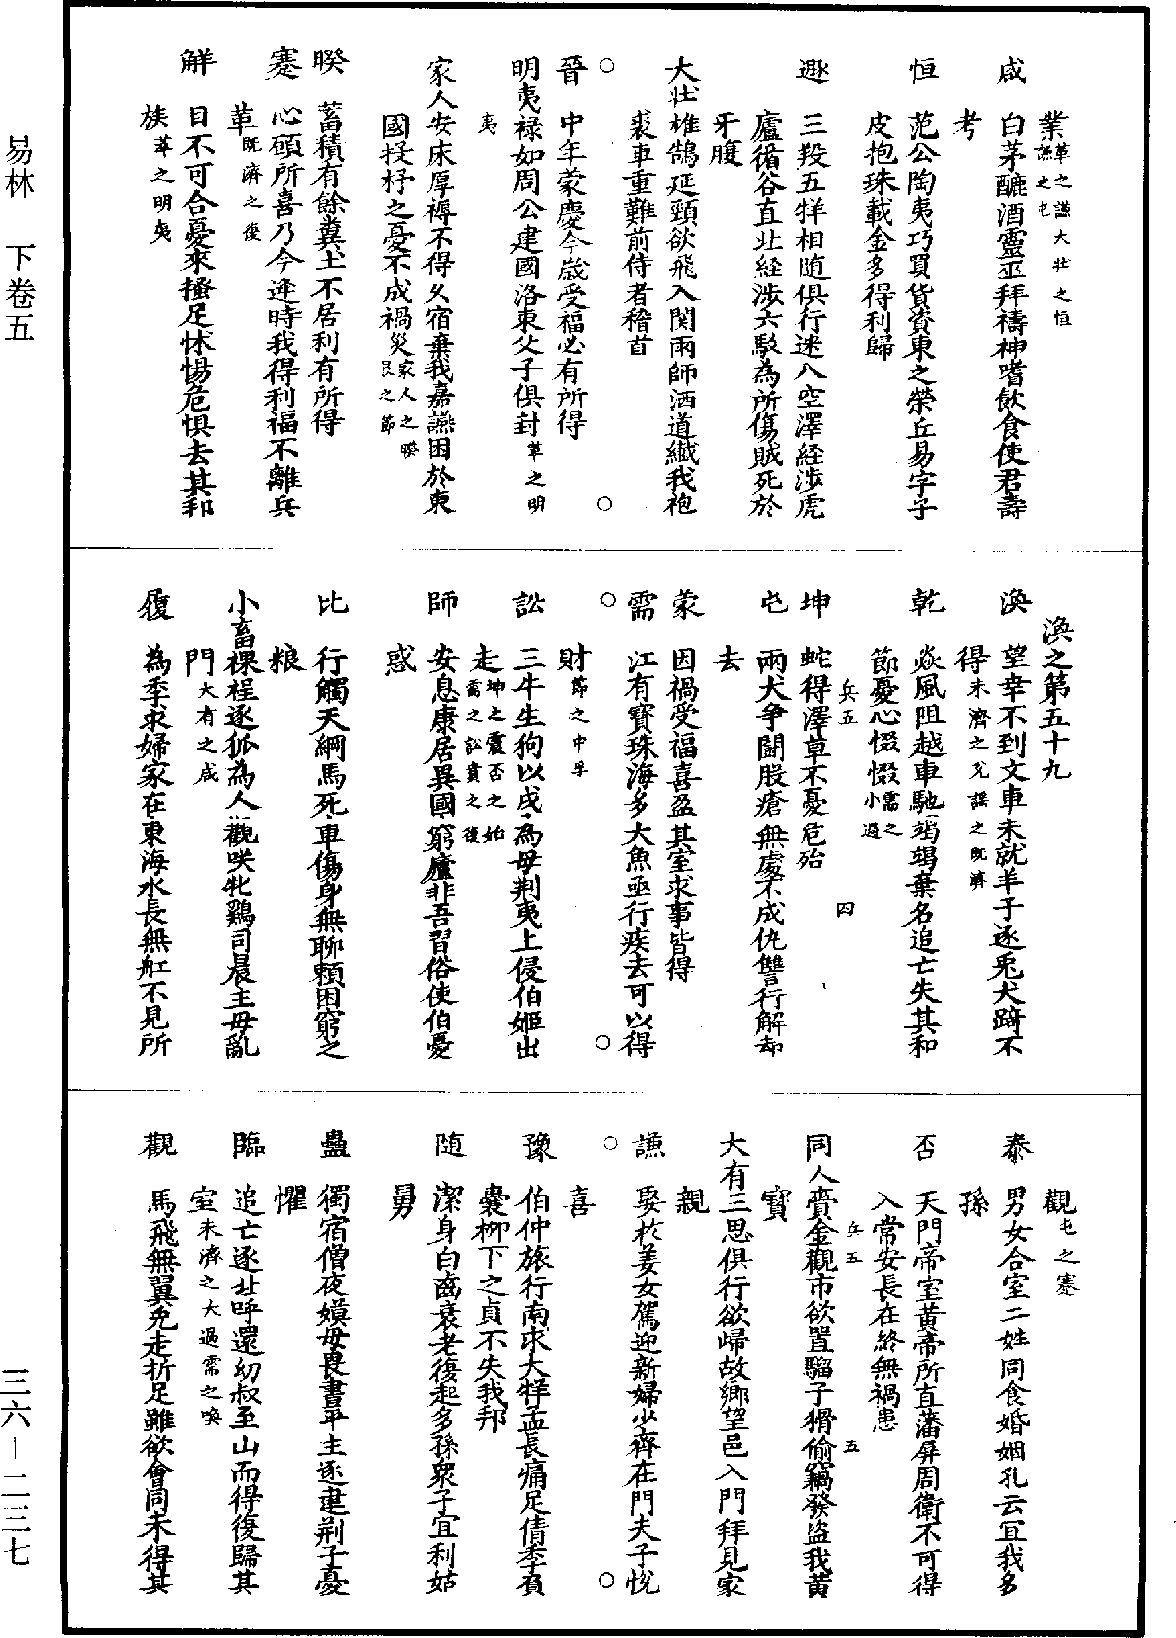 易林　下卷五
三六－二三七
業革之謙大壯之恒謙之屯
咸　白茅醴酒靈巫拜禱神嗜飲食使君壽
考
恒　范公陶夷巧買貨資東之榮丘易字子
皮抱珠載金多得利歸
遯　三羖五牂相随俱行迷入空澤経涉虎
廬循谷直北経涉六駁為所傷賊死於
牙腹
大壯　雄鵠延頸欲飛入関雨師洒道纎我袍
裘車重難前侍者稽首
晉　中年蒙慶今歲受福必有所得
明夷　禄如周公建國洛東父子俱封革之明
夷
家人　安床厚褥不得久宿棄我嘉讌困於東
國投杼之憂不成禍災家人之睽艮之節
睽　蓄積有餘糞土不居利有所得
蹇　心願所喜乃今逢時我得利福不離兵
革既濟之復
解　目不可合憂來搔足怵惕危惧去其邦
族萃之明夷
渙之第五十九
渙　望幸不到文車未就羊子逐兎犬踦不
得未濟之兊謙之既濟
乾　焱風阻越車馳揭揭棄名追亡失其和
節憂心惙惙需之小過
坤　蛇得澤草不憂危殆
兵五　四
屯　兩犬争鬬股瘡無處不成仇讐行解却
去
蒙　因禍受福喜盈其室求事皆得
需　江有寳珠海多大魚亟行疾去可以得
財節之中孚
訟　三牛生狗以戌為母荆夷上侵伯姬出
走坤之震否之始需之訟賁之復
師　安息康居異國窮廬非吾習俗使伯憂
惑
比　行觸天綱馬死車傷身無聊頼困窮乏
粮
小畜　裸裎逐狐為人觀咲牝鷄司晨主母亂
門大有之咸
履　為季求婦家在東海水長無舡不見所
觀屯之蹇
泰　男女合室二姓同食婚姻孔云冝我多
孫
否　天門帝室黄帝所直藩屏周衛不可得
入常安長在終無禍患
兵五　五
同人　賣金觀市欲買騮子猾偷竊發盜我黄
寳
大有　三思俱行欲歸故鄉望邑入門拜見家
親
謙　娶於姜女駕迎新婦少齊在門夫子悅
喜
豫　伯仲旅行南求大牂孟長痛足倩季負
囊柳下之貞不失我邦
随　潔身白齒衰老復起多孫衆子宜利姑
舅
蠱　獨宿僧夜嫫母畏晝平主逐建荆子憂
懼
臨　追亡逐北呼還幼叔至山而得復歸其
室未濟之大過需之喚
觀　馬飛無翼免走折足雖欲會同未得其